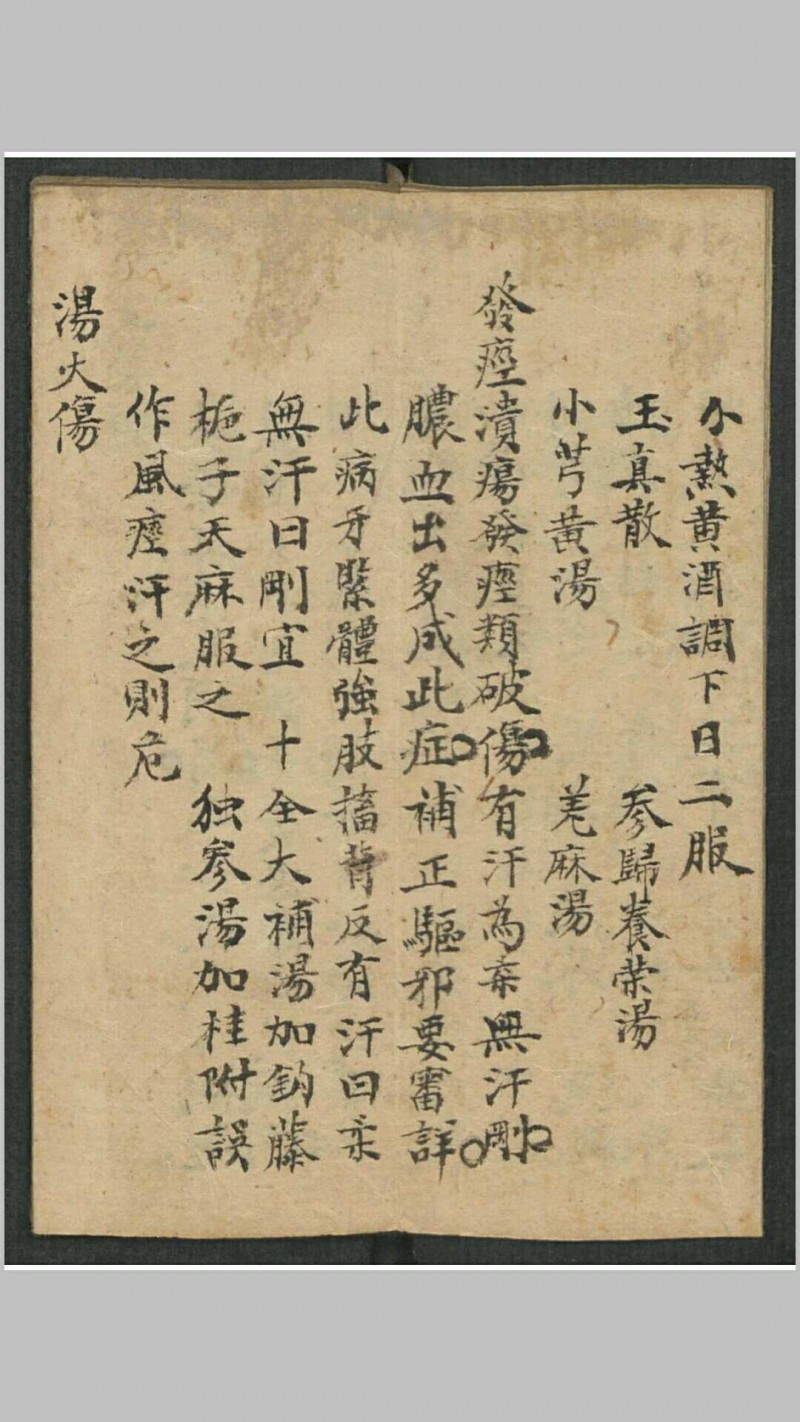 小熱黄酒調下日二服
玉真散 参歸養荣湯
小芎黄湯 羌麻湯
發痙潰瘍發痙類破傷有汗為柔無汗剛
膿血出多成此症補正驅邪要審詳
此病牙緊體強肢搐背反有汗曰柔
無汗曰剛宜 十全大補湯加鈎藤
梔子天麻服之 独参湯加桂附誤
作風痙汗之則危
湯火傷